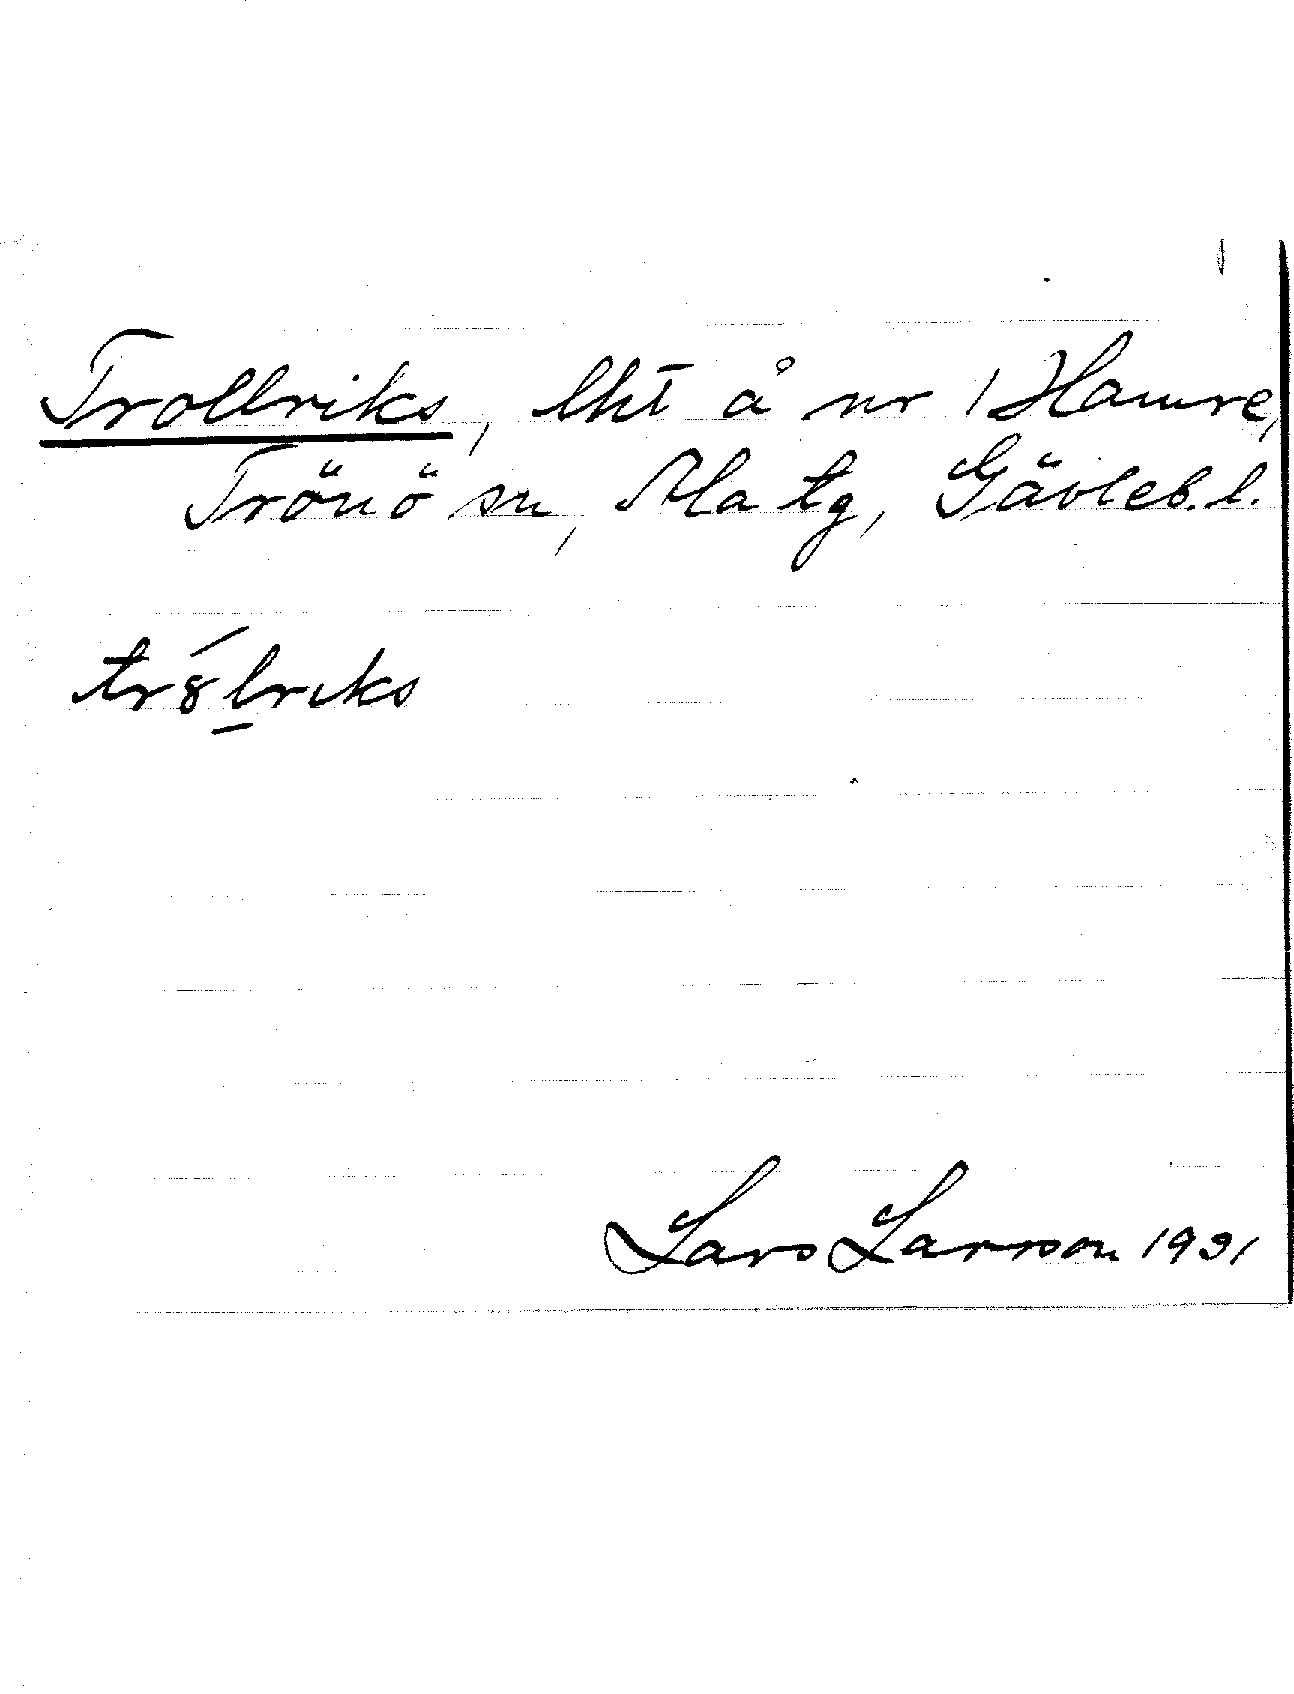 Trollriks, lht å nr 1 Hamre,
Trönö sn, Ala tg, Gävleb. l.
tr8́l̠riks
Lars Larsson 1931